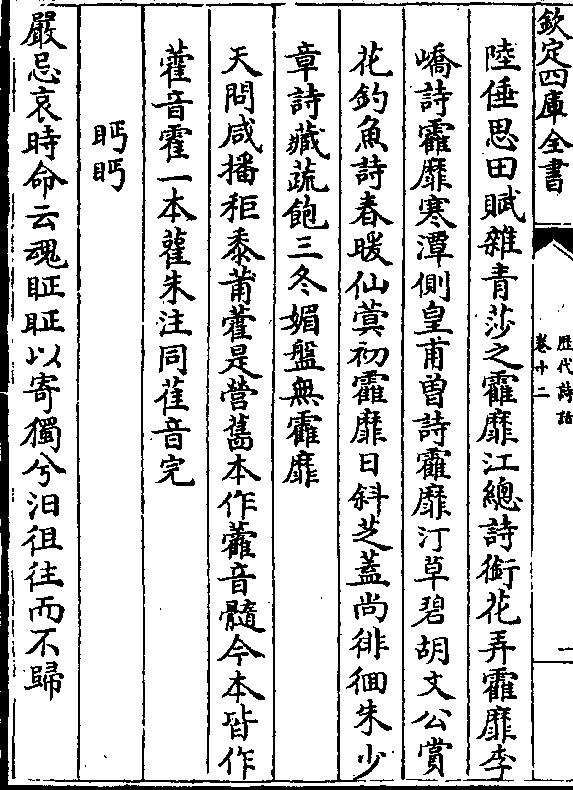 欽定四庫全書
歷代詩話
卷十二
一
陸倕思田賦雜青莎之靃靡江總詩銜花弄靃靡李
嶠詩靃靡寒潭側皇甫曽詩靃靡汀草碧胡文公賞
花釣魚詩春暖仙蓂初靃靡日斜芝蓋尚徘徊朱少
章詩藏蔬飽三冬媚盤無靃靡
天問咸播秬黍莆雚是營舊本作藿音髓今本皆作
藿音霍一本雚朱注同萑音完
眄眄
嚴忌哀時命云魂眐眐以寄獨兮汨徂往而不歸